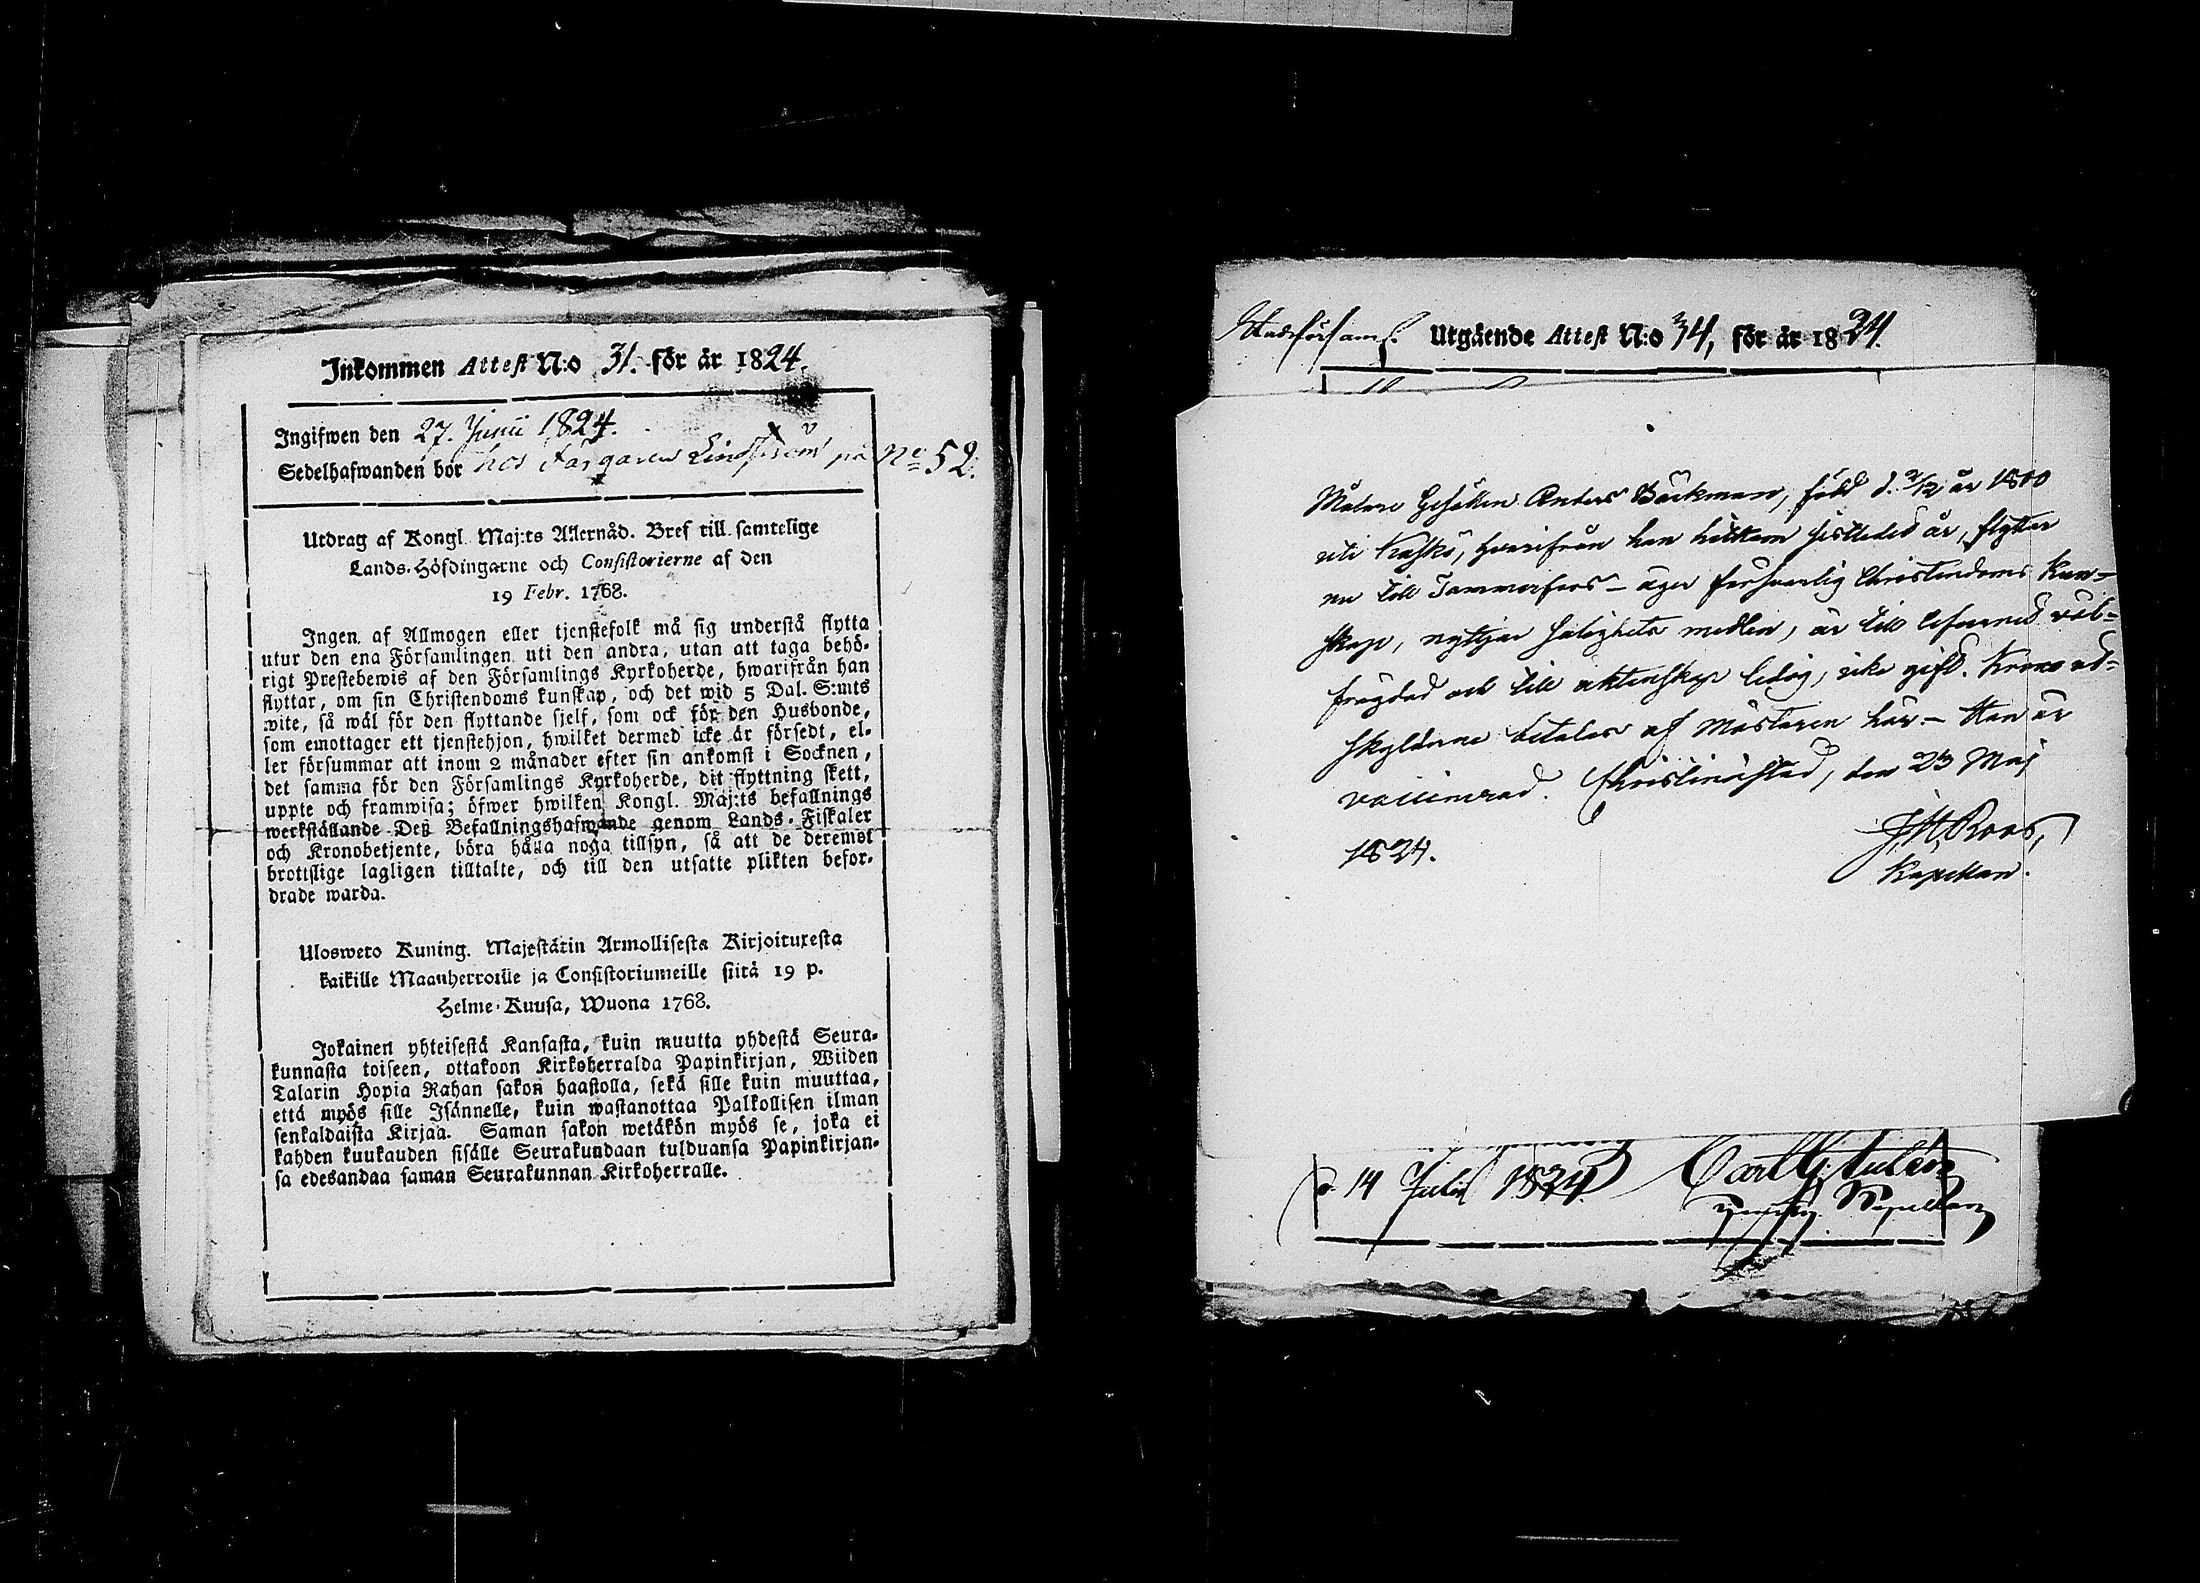 Inkommen Attest N:o 31. för år 1824.
Ingifwen den 27. Junii 1824.
Sedelhafwanden bor hos Färgaren Lindström på No 52.
Utdrag af Kongl. Maj:ts Allernåd. Bref till samtelige
Lands-Höfdingarne och Consistorierne af den
19 Febr. 1768.
Ingen af Allmogen eller tjenstefolk må sig understå flytta
utur den ena Församlingen uti den andra, utan att taga behö-
rigt Prestebewis af den Församlings Kyrkoherde, hwarifrån han
flyttar, om sin Christendoms kunskap, och det wid 5 Dal. S:mts
wite, så wäl för den flyttande sjelf, som ock för den Husbonde,
som emottager ett tjenstehjon, hwilket dermed icke är försedt, el-
ler försummar att inom 2 månader efter sin ankomst i Socknen,
det samma för den Församlings Kyrkoherde, dit flyttning skett,
uppte och framwisa; öfwer hwilken Kongl. Maj:ts befallnings
werkställande Deß Befallningshafwande genom Lands-Fiskaler
och Kronobetjente, böra hålla noga tillsyn, så att de deremot
brottslige lagligen tilltalte, och till den utsatte plikten befor-
drade warda.
Ulosweto Kuning. Majestätin Armollisesta Kirjoituxesta
kaikille Maanherroille ja Consistoriumeille siitä 19 p.
Helme-Kuusa, Wuona 1768.
Jokainen yhteisestä Kansasta, kuin muutta yhdestä Seura-
kunnasta toiseen, ottakoon Kirkoherralda Papinkirjan, Wiiden
Talarin Hopia Rahan sakon haastolla, sekä sille kuin muuttaa,
että myös sille Isännelle, kuin wastanottaa Palkollisen ilman
senkaldaista Kirjaa. Saman sakon wetäkön myös se, joka ei
kahden kuukauden sisälle Seurakundaan tulduansa Papinkirjan-
sa edesandaa saman Seurakunnan Kirkoherralle.
Stadsförsaml. Utgående Attest N:o 34, för år 1824.
Målare Gesällen Anders Bäckman, född d. 2/12 år 1800
uti Kaskö, hvarifrån han hitkom sistleded år, flyttar
nu till Tammerfors - äger försvarlig Christendoms kun-
skap, nyttjar salighets medlen, är till lefverned väl-
frägdad och till äktenskap ledig, icke gift. Krono ut-
skylderne betalas af Mästaren här - Han är
vaccinerad. Christinæstad, den 23 Maj
1824.
Roos,
Kapellan.
d. 14 Julii 1824. Carl G.